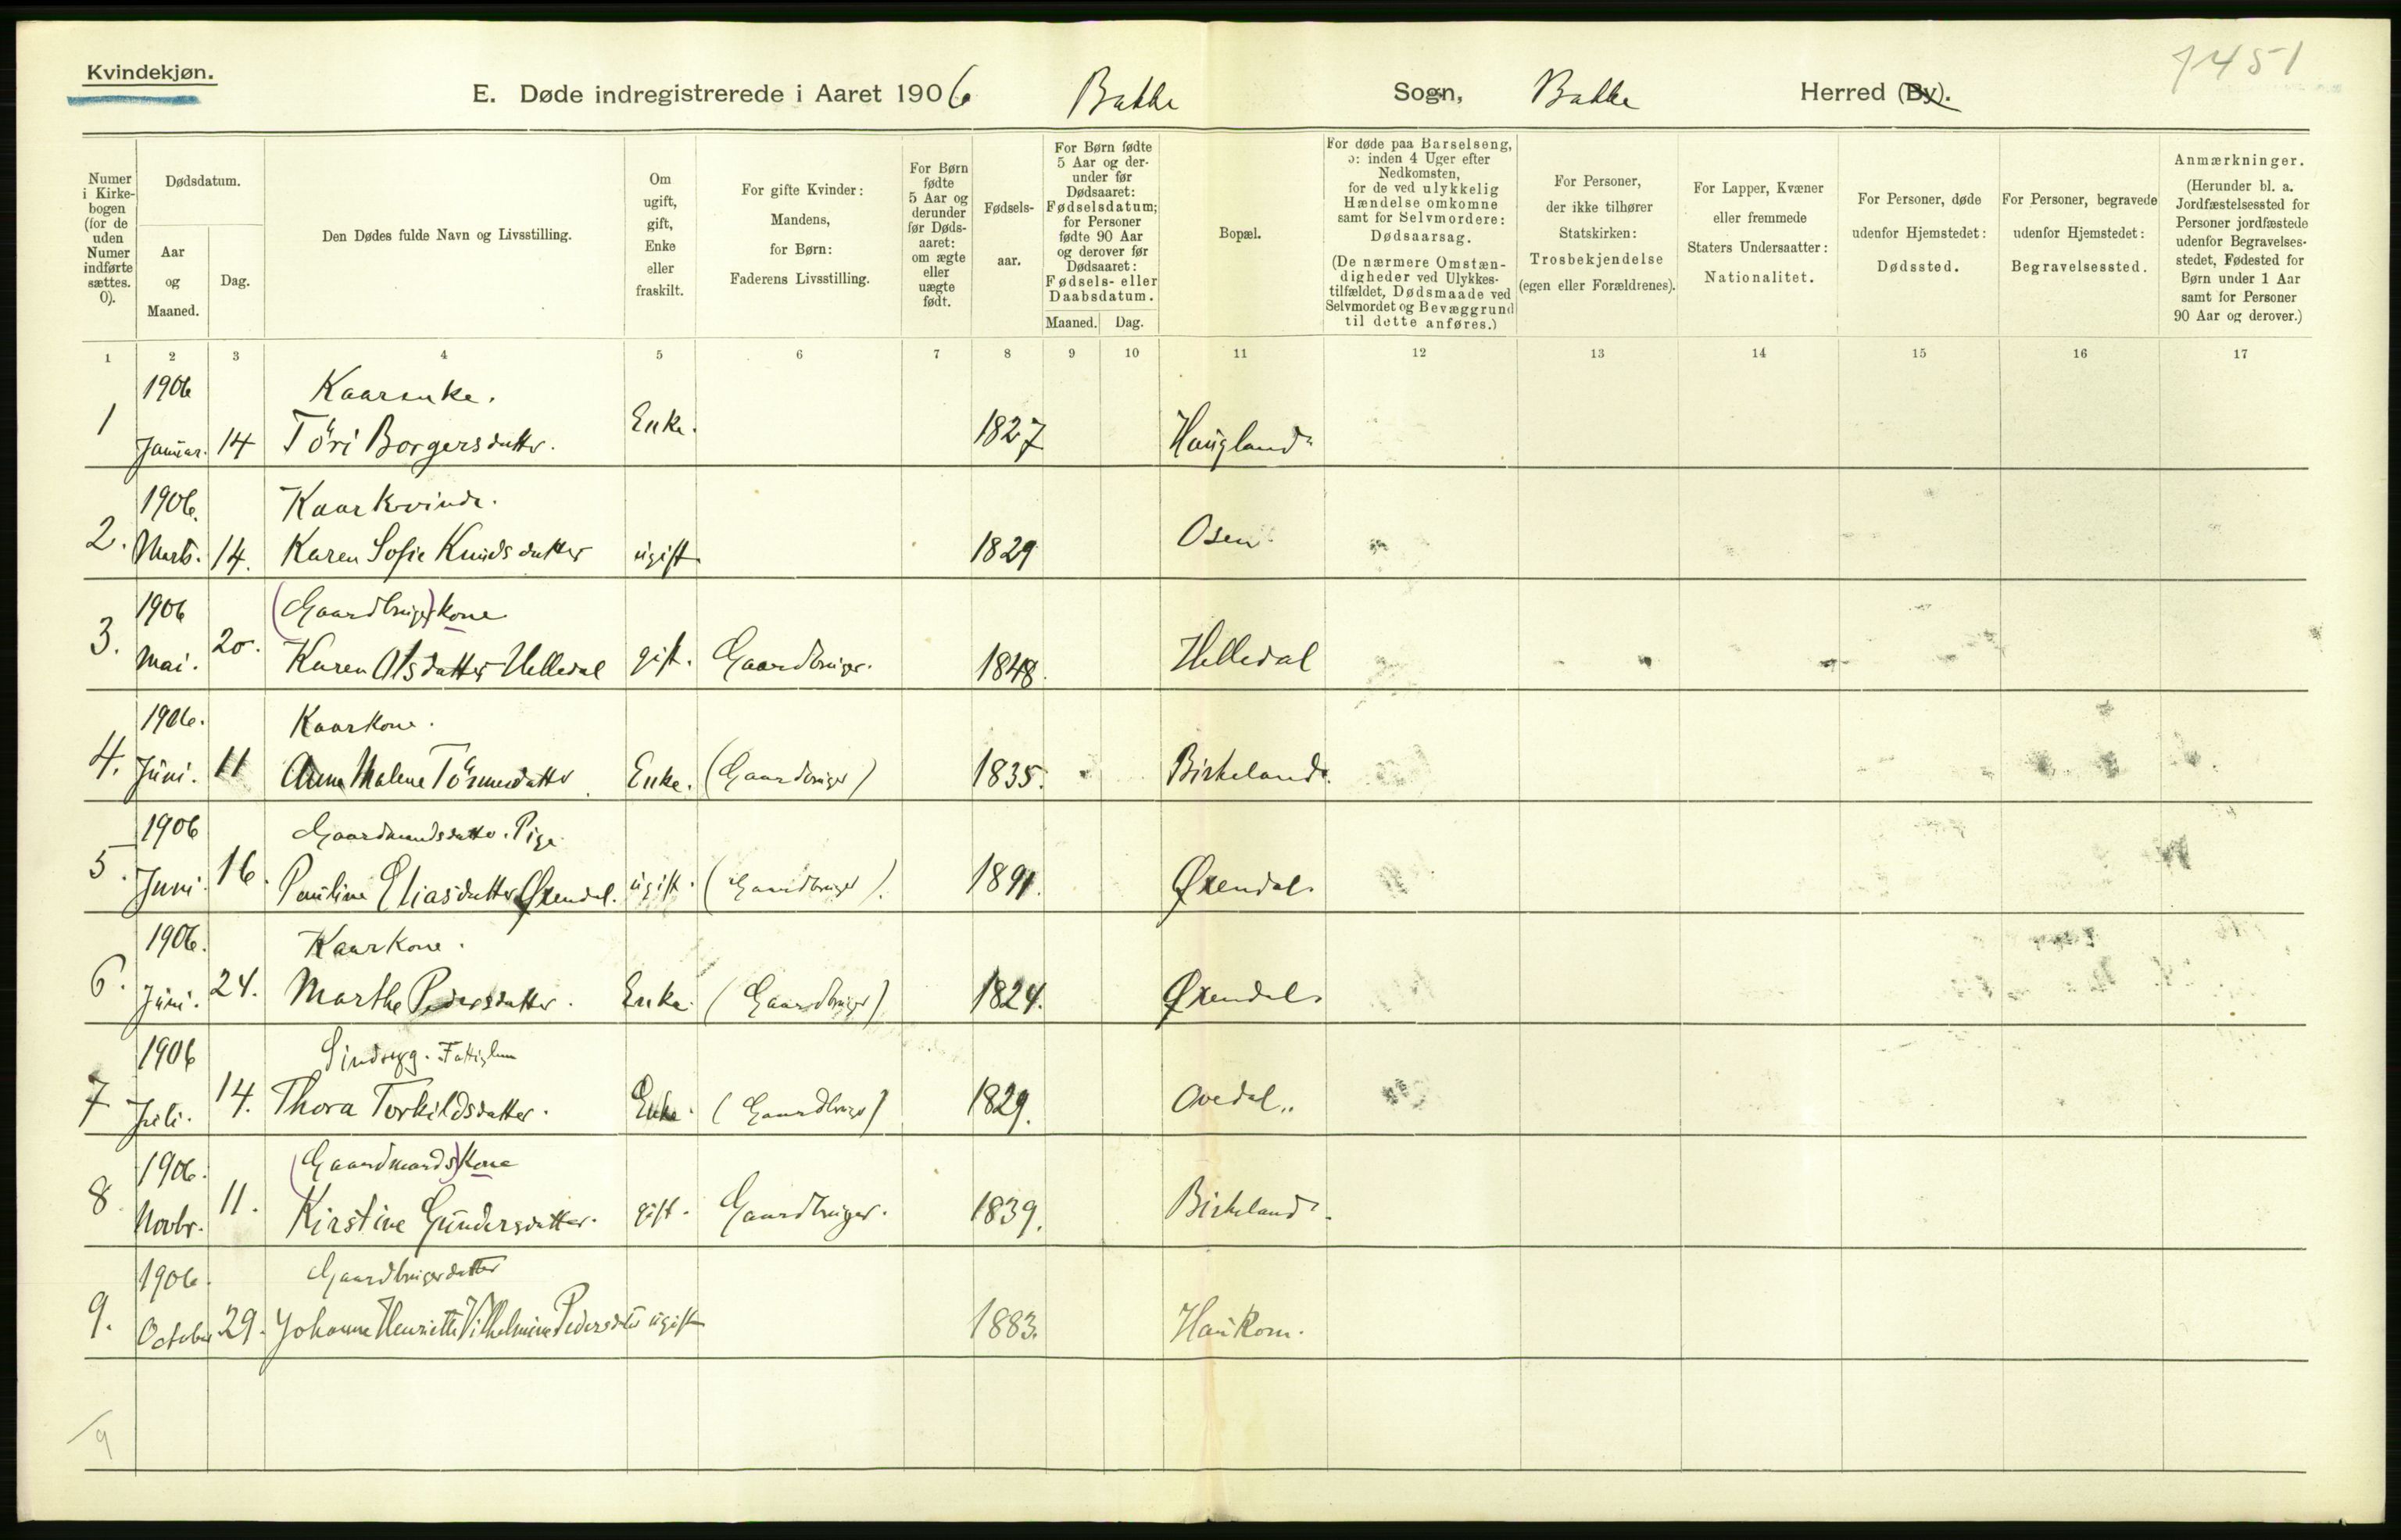 Kvindekjøn.
E. Døde indregistrerede i Aaret 1906 Bakke Sogn, Bakke Herred (By).
7451
Numer i Kirkebogen (for de uden Numer indførte sættes. 0).
Dødsdatum.
Aar og Maaned.
Dag.
Den Dødes fulde Navn og Livsstilling.
Om ugift, gift, Enke eller fraskilt.
For gifte Kvinder: Mandens, for Børn: Faderens Livsstilling.
For Børn fødte 5 Aar og derunder før Dødsaaret: om ægte eller uægte født.
Fødselsaar.
For Børn fødte 5 Aar og derunder før Dødsaaret: Fødselsdatum; for Personer fødte 90 Aar og derover før Dødsaaret: Fødsels- eller Daabsdatum.
Maaned. Dag.
Bopæl.
For døde paa Barselseng, ɔ: inden 4 Uger efter Nedkomsten, for de ved ulykkelig Hændelse omkomne samt for Selvmordere: Dødsaarsag.
(De nærmere Omstændigheder ved Ulykkestilfældet, Dødsmaade ved Selvmordet og Bevæggrund til dette anføres.)
For Personer, der ikke tilhører Statskirken: Trosbekjendelse (egen eller Forældrenes).
For Lapper, Kvæner eller fremmede Staters Undersaatter: Nationalitet.
For Personer, døde udenfor Hjemstedet: Dødssted.
For Personer, begravede udenfor Hjemstedet: Begravelsessted.
Anmærkninger.
(Herunder bl. a. Jordfæstelsessted for Personer jordfæstede udenfor Begravelsesstedet, Fødested for Børn under 1 Aar samt for Personer 90 Aar og derover.)
1 2 3 4 5 6 7 8 9 10 11 12 13 14 15 16 17
1906 Kaarenke.
1 Januar. 14 Töri Borgersdatter. Enke. 1827 Haugland
1906. Kaarkvinde.
2. Marts. 14. Karen Sofie Knudsdatter ugift 1829 Osen
1906 (Gaardbruger)kone
3. Mai. 20. Karen Olsdatter Helledal gift. Gaardbruger. 1848. Helledal
1906. Kaarkone.
4. Juni. 11 Anna Malene Tönnesdatter Enke. (Gaardbruger) 1835. Birkeland.
1906 Gaardmandsdatter. Pige
5. Juni. 16. Pauline Eliasdatter Øxendal. ugift. (Gaardbruger). 1891. Øxendal.
1906. Kaarkone.
6. Juni. 24. Marthe Pedersdatter. Enke. (Gaardbruger) 1824. Øxendal.
1906 Sindsyg. Fattiglem
7 Juli. 14. Thora Torkildsdatter. Enke. (Gaardbruger) 1829. Ovedal..
1906. (Gaardmands)kone
8. Novbr. 11. Kirstine Gundersdatter. gift. Gaardbruger. 1839. Birkeland.
1906. Gaardbrugerdatter
9. October 29. Johanne Henriette Vilhelmine Pedersdtr ugift 1883. Haukom.
9